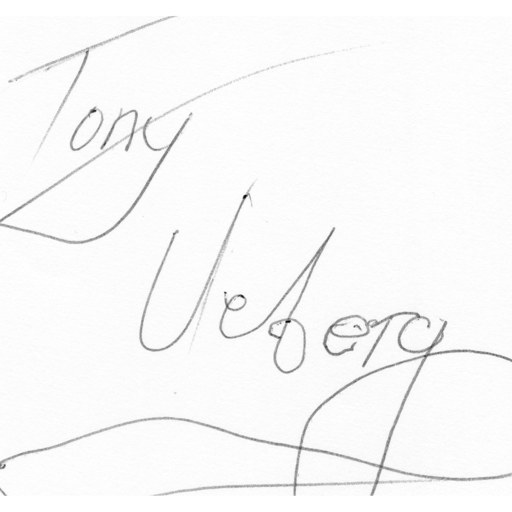 Tony
Ueberg